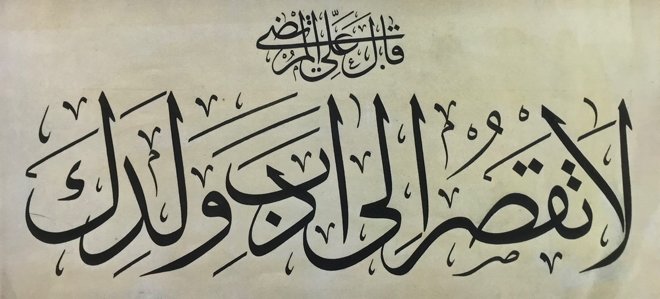 قال علي المرتضى
لا تقصر الى ادب ولدك